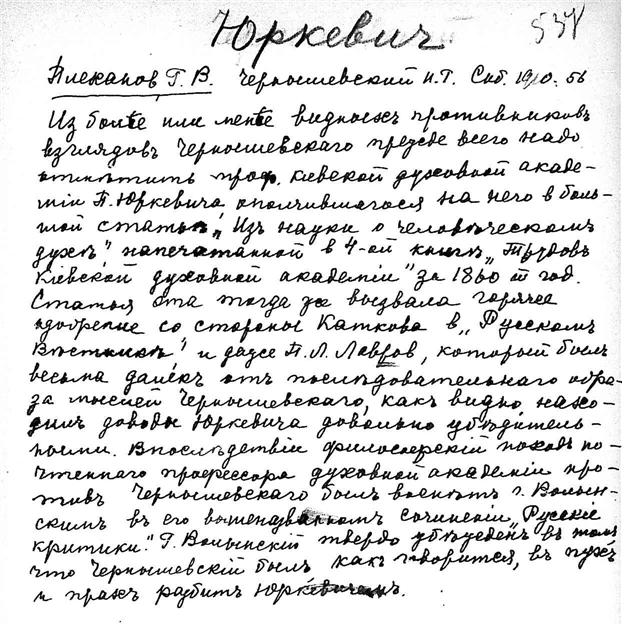 Юркевич 537
Плеханов Г. В. Чернышевский Н.Г. Спб. 1910. 56
Из более или менѣе видныхъ противниковъ
взглядовъ Чернышевскаго прежде всего надо
отмѣтить проф. кіевской духовной акаде-
міи П. Юркевича ополчившагося на него в боль-
шой статьѣ „Изъ науки о человѣческомъ
духѣ" напечатанной в 4-ой книгѣ „Трудовъ
Кіевской духовной академіи" за 1860 й год.
Статья эта тогда же вызвала горячее
одобрение со стороны Каткова в „Русскомъ
Вѣстникѣ" и даже П. Л. Лавров, который былъ
весьма далёк отъ послѣдовательнаго обра-
за мыслей Чернышевскаго, какъ видно нахо-
дилъ доводы Юркевича довольно убѣдитель-
ными. Впослѣдствіи философскій походъ по-
чтеннаго профессора духовной академіи про-
тивъ Чернышевскаго былъ воспѣтъ г. Волын-
скимъ въ его вышеназванномъ сочиненіи „Русскіе
критики." Г. Волынскій твердо убѣжденъ в томъ
что Чернышевскій былъ какъ говорится, въ пухъ
и прахъ разбитъ Юркевичемъ.